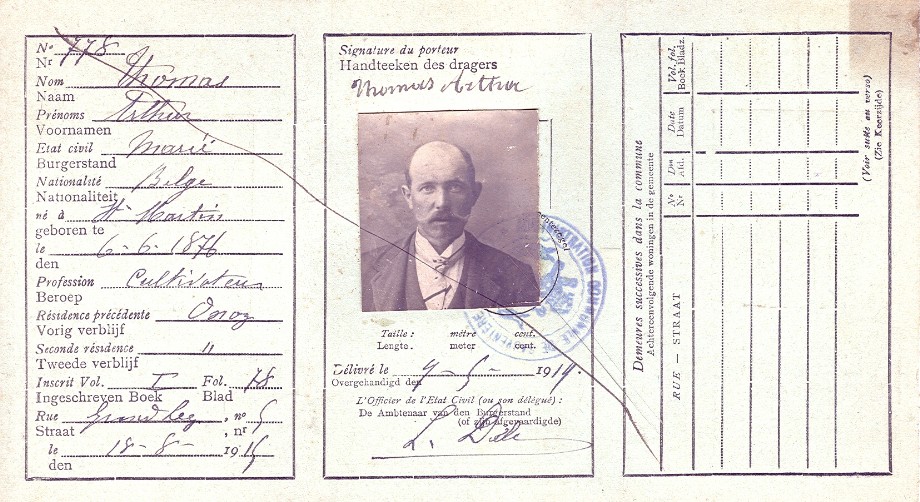 N° 778
Nr
Nom Thomas
Naam
Prénoms Arthur
Voornamen
Etat civil Marié
Burgerstand
Nationalité Belge
Nationaliteit
né à St Martin
geboren te
le 6-6-1876
den
Profession Cultivateur
Beroep
Résidence précédente Onoz
Vorig verblijf
Seconde résidence "
Tweede verblijf
Inscrit Vol. I Fol. 78
Ingeschreven Boek Blad
Rue , n° 5
Straat , nr
le 18-8- 19
den
Signature du porteur
Handteeken des dragers
Thomas Arthur
Taille : mètre cent.
Lengte. meter cent.
Délivré le 7-5- 1919.
Overgehandigd den
L'Officier de l'Etat Civil (ou son délégué) :
De Ambtenaar van den Burgerstand
(of zijn afgevaardigde)
Demeures successives dans la commune
Achtereenvolgende woningen in de gemeente
RUE — STRAAT
N°
Nr
Div
Afd.
Date
Datum
Vol. fol.
Boek Bladz.
(Voir suite au verso)
(Zie Keerzijde)